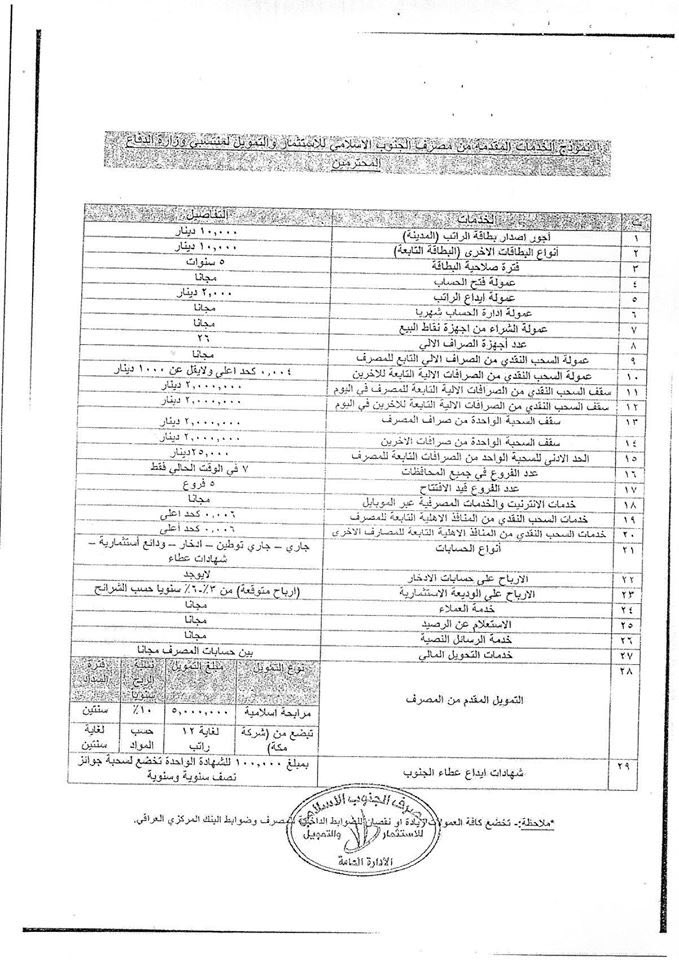 نموذج الخدمات المقدمة من مصرف الجنوب الاسلامي للاستثمار والتمويل لمنتسبي وزارة الدفاع
المحترمين
ت الخدمات التفاصيل
١ أجور اصدار بطاقة الراتب (المدينة) ١٠,٠٠٠ دينار
٢ أنواع البطاقات الاخرى (البطاقة التابعة) ١٠,٠٠٠ دينار
٣ فترة صلاحية البطاقة ٥ سنوات
٤ عمولة فتح الحساب مجانا
٥ عمولة ايداع الراتب ٢,٠٠٠ دينار
٦ عمولة ادارة الحساب شهريا مجانا
٧ عمولة الشراء من اجهزة نقاط البيع مجانا
٨ عدد أجهزة الصراف الالي ٢٦
٩ عمولة السحب النقدي من الصراف الالي التابع للمصرف مجانا
١٠ عمولة السحب النقدي من الصرافات الالية التابعة للاخرين ٠,٠٠٤ كحد اعلى ولايقل عن ١٠٠٠ دينار
١١ سقف السحب النقدي من الصرافات الالية التابعة للمصرف في اليوم ٢,٠٠٠,٠٠٠ دينار
١٢ سقف السحب النقدي من الصرافات الالية التابعة للاخرين في اليوم ٢,٠٠٠,٠٠٠ دينار
١٣ سقف السحبة الواحدة من صراف المصرف ٢,٠٠٠,٠٠٠ دينار
١٤ سقف السحبة الواحدة من صرافات الاخرين ٢,٠٠٠,٠٠٠ دينار
١٥ الحد الادنى للسحبة الواحد من الصرافات التابعة للمصرف ٢٥,٠٠٠ دينار
١٦ عدد الفروع في جميع المحافظات ٧ في الوقت الحالي فقط
١٧ عدد الفروع قيد الافتتاح ٥ فروع
١٨ خدمات الانترنيت والخدمات المصرفية عبر الموبايل مجانا
١٩ خدمات السحب النقدي من المنافذ الاهلية التابعة للمصرف ٠,٠٠٦ كحد اعلى
٢٠ خدمات السحب النقدي من المنافذ الاهلية التابعة للمصارف الاخرى ٠,٠٠٦ كحد اعلى
٢١ أنواع الحسابات جاري – جاري توطين – ادخار – ودائع أستثمارية –
شهادات عطاء
٢٢ الارباح على حسابات الادخار لايوجد
٢٣ الارباح على الوديعة الاستثمارية (ارباح متوقعة) من ٣٪-٦٪ سنويا حسب الشرائح
٢٤ خدمة العملاء مجانا
٢٥ الاستعلام عن الرصيد مجانا
٢٦ خدمة الرسائل النصية مجانا
٢٧ خدمات التحويل المالي بين حسابات المصرف مجانا
٢٨ التمويل المقدم من المصرف
نوع التمويل مبلغ التمويل نسبة الربح سنويا فترة السداد
مرابحة اسلامية ٥,٠٠٠,٠٠٠ ١٠٪ سنتين
تبضع من (شركة مكة) لغاية ١٢ راتب حسب المواد لغاية سنتين
٢٩ شهادات ايداع عطاء الجنوب بمبلغ ١٠٠,٠٠٠ للشهادة الواحدة تخضع لسحبة جوائز
نصف سنوية وسنوية
*ملاحظة:- تخضع كافة العمولات زيادة او نقصان للضوابط الداخلية للمصرف وضوابط البنك المركزي العراقي.
مصرف الجنوب الاسلامي
للاستثمار والتمويل
الادارة العامة